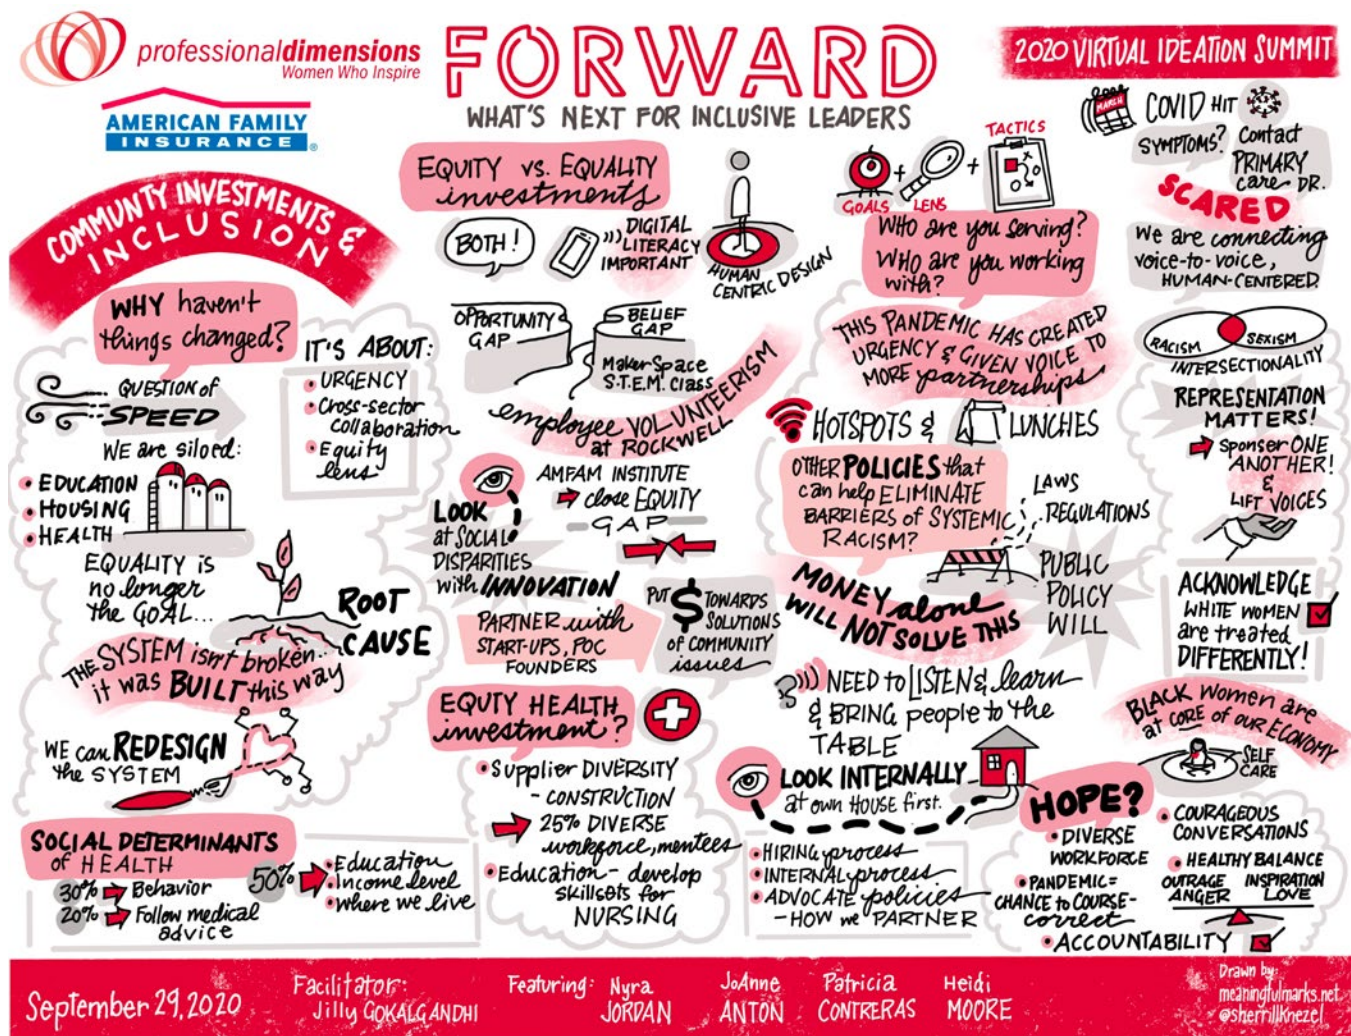 professionaldimensions
Women Who Inspire
AMERICAN FAMILY
INSURANCE
FORWARD
WHAT'S NEXT FOR INCLUSIVE LEADERS
2020 VIRTUAL IDEATION SUMMIT
COMMUNTY INVESTMENTS &
INCLUSION
WHY haven't
things changed?
QUESTION of
SPEED
WE are siloed:
• EDUCATION
• HOUSING
• HEALTH
IT'S ABOUT:
• URGENCY
• Cross-sector
collaboration
• Equity
lens
EQUALITY is
no longer
the GOAL...
ROOT
CAUSE
THE SYSTEM isn't broken...
it was BUILT this way
WE can REDESIGN
the SYSTEM
SOCIAL DETERMINANTS
of HEALTH
30% Behavior
20% Follow medical
advice
50%
• Education
• Income level
• where we live
EQUITY vs. EQUALITY
investments
BOTH!
DIGITAL
LITERACY
IMPORTANT
HUMAN
CENTRIC DESIGN
OPPORTUNITY
GAP
BELIEF
GAP
MakerSpace
S.T.E.M. Class
employee VOLUNTEERISM
at ROCKWELL
AMFAM INSTITUTE
close EQUITY
GAP
LOOK
at SOCIAL
DISPARITIES
with INNOVATION
PARTNER with
START-UPS, POC
FOUNDERS
PUT $ TOWARDS
SOLUTIONS
of COMMUNITY
issues
EQUTY HEALTH
investment?
• Supplier DIVERSITY
- CONSTRUCTION
25% DIVERSE
workforce, mentees
• Education - develop
skillsets for
NURSING
GOALS
+
LENS
+
TACTICS
WHO are you serving?
WHO are you working
with?
THIS PANDEMIC HAS CREATED
URGENCY & GIVEN VOICE TO
MORE partnerships
HOTSPOTS & LUNCHES
OTHER POLICIES that
can help ELIMINATE
BARRIERS of SYSTEMIC
RACISM?
LAWS
REGULATIONS
PUBLIC
POLICY
WILL
MONEY alone
WILL NOT SOLVE THIS
NEED to LISTEN & learn
& BRING people to the
TABLE
LOOK INTERNALLY
at own HOUSE first.
• HIRING process
• INTERNAL process
• ADVOCATE policies
- HOW we PARTNER
MARCH
COVID HIT
SYMPTOMS?
Contact
PRIMARY
care DR.
SCARED
We are connecting
voice-to-voice,
HUMAN-CENTERED
RACISM
SEXISM
INTERSECTIONALITY
REPRESENTATION
MATTERS!
Sponser ONE
ANOTHER!
&
LIFT VOICES
ACKNOWLEDGE
WHITE WOMEN
are treated
DIFFERENTLY!
BLACK women are
at CORE of OUR ECONOMY
SELF
CARE
HOPE?
• DIVERSE
WORKFORCE
• PANDEMIC=
CHANCE to COURSE-
correct
• ACCOUNTABILITY
• COURAGEOUS
CONVERSATIONS
• HEALTHY BALANCE
OUTRAGE INSPIRATION
ANGER LOVE
September 29, 2020
Facilitator:
Jilly GOKALGANDHI
Featuring: Nyra
JORDAN
JoAnne
ANTON
Patricia
CONTRERAS
Heidi
MOORE
Drawn by:
meaningfulmarks.net
@sherrillknezel